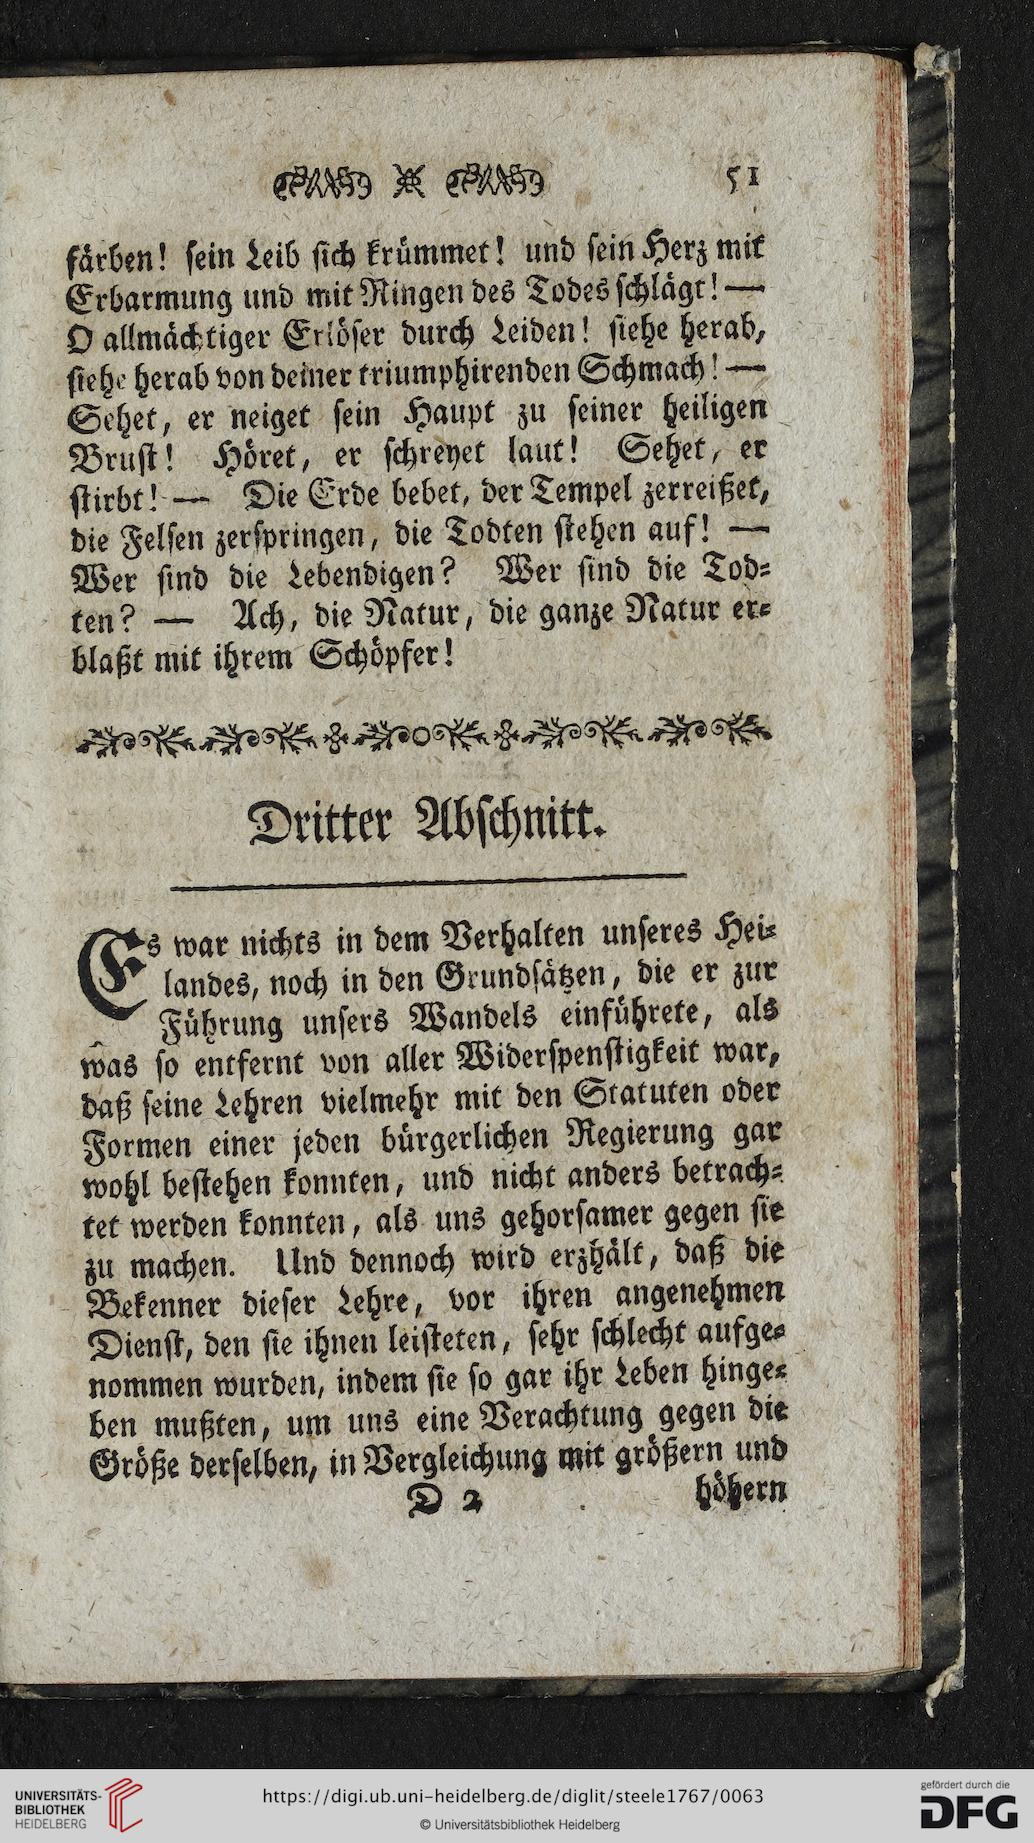 51
färben! sein Leib sich krümmet! und sein Herz mit
Erbarmung und mit Ringen des Todes schlägt! —
O allmächtiger Erlöser durch Leiden! siehe herab,
siehe herab von deiner triumphirenden Schmach! —
Sehet, er neiget sein Haupt zu seiner heiligen
Brust! Höret, er schreyet laut! Sehet, er
stirbt! — Die Erde bebet, der Tempel zerreißet,
die Felsen zerspringen, die Todten stehen auf! —
Wer sind die Lebendigen? Wer sind die Tod-
ten? — Ach, die Natur, die ganze Natur er-
blaßt mit ihrem Schöpfer!
Dritter Abschnitt.
Es war nichts in dem Verhalten unseres Hei-
landes, noch in den Grundsätzen, die er zur
Führung unsers Wandels einführete, als
was so entfernt von aller Widerspenstigkeit war,
daß seine Lehren vielmehr mit den Statuten oder
Formen einer jeden bürgerlichen Regierung gar
wohl bestehen konnten, und nicht anders betrach-
tet werden konnten, als uns gehorsamer gegen sie
zu machen. Und dennoch wird erzhält, daß die
Bekenner dieser Lehre, vor ihren angenehmen
Dienst, den sie ihnen leisteten, sehr schlecht aufge-
nommen wurden, indem sie so gar ihr Leben hinge-
ben mußten, um uns eine Verachtung gegen die
Größe derselben, in Vergleichung mit größern und
D 2 höhern
UNIVERSITÄTS-
BIBLIOTHEK
HEIDELBERG
https://digi.ub.uni-heidelberg.de/diglit/steele1767/0063
© Universitätsbibliothek Heidelberg
gefördert durch die
DFG